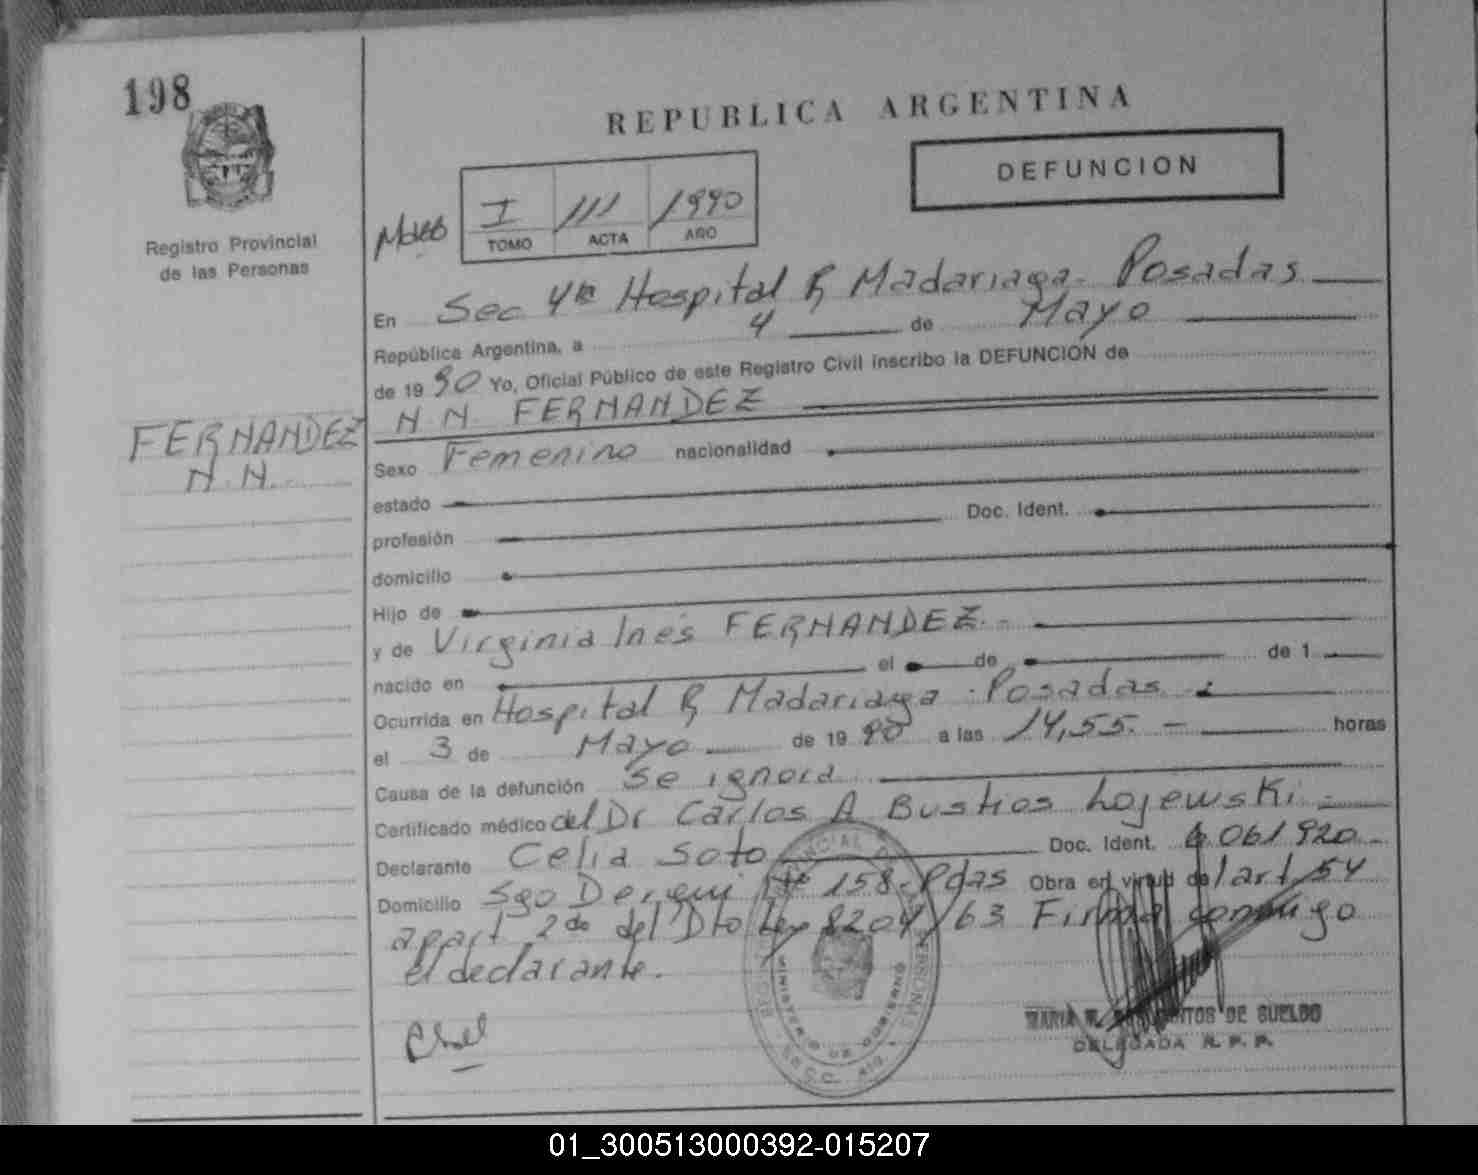 198
REPUBLICA ARGENTINA
DEFUNCION
I 111 1990
TOMO ACTA AÑO
Registro Provincial
de las Personas
En Sec 4ta Hospital R Madariaga - Posadas
República Argentina, a 4 de Mayo
de 1990 Yo, Oficial Público de este Registro Civil inscribo la DEFUNCION de
N.N. FERNANDEZ
FERNANDEZ
N.N.
Sexo Femenino nacionalidad
estado
profesión Doc. Ident.
domicilio
Hijo de
y de Virginia Inés FERNANDEZ.-
nacido en el de de 1
Ocurrida en Hospital R Madariaga - Posadas
el 3 de Mayo de 1990 a las 14,55.- horas
Causa de la defunción se ignora
Certificado médico del Dr Carlos A Bustios Lojewski
Declarante Celia Soto Doc. Ident. 6 061 920-
Domicilio Sgo Derqui Nº 158-Pdas Obra en virtud de l art 54
apart 2do del Dto Ley 8204/63 Firma conmigo
el declarante.
MINISTERIO DE GOBIERNO
DE SUELDO
DELEGADA R. P. P.
01_300513000392-015207